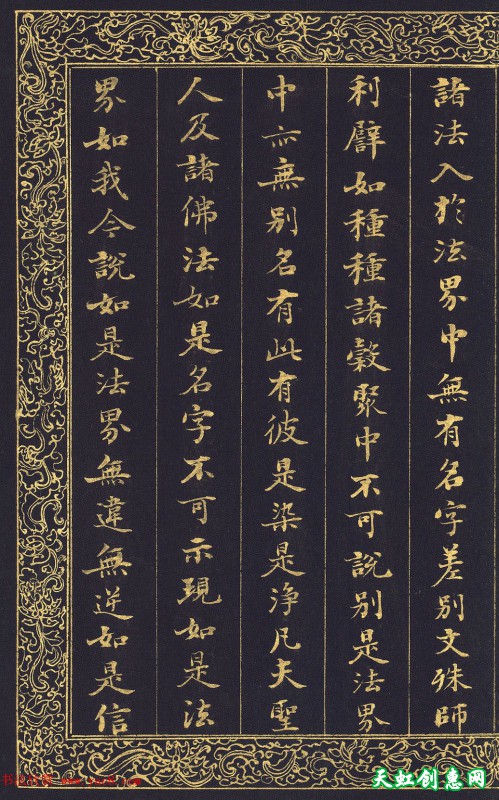 諸法入於法界中無有名字差別文殊師
利譬如種種諸穀聚中不可說別是法界
中亦無別名有此有彼是染是淨凡夫聖
人及諸佛法如是名字不可示現如是法
界如我今說如是法界無違無逆如是信
天虹创惠网